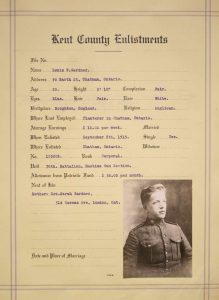 Kent County Enlistments
File No.
Name: Louis F. Gardner,
Address: 90 Barth St., Chatham, Ontario.
Age 22. Height 5' 10" Complexion Fair.
Eyes Blue. Hair Fair. Race White.
Birthplace Houghton, England. Religion Anglican.
Where Last Employed Plasterer in Chatham, Ontario.
Average Earnings $ 15.00 per week. Married
When Enlisted September 8th, 1915. Single Yes.
Where Enlisted Chatham, Ontario. Widower
No. Rank Corporal.
Unit Battalion, Machine Gun Section.
Allowance from Patriotic Fund $ 20.00 per month.
Next of Kin
Mother: Mrs. Sarah Gardner,
Ave., London, Ont.
Date and Place of Marriage